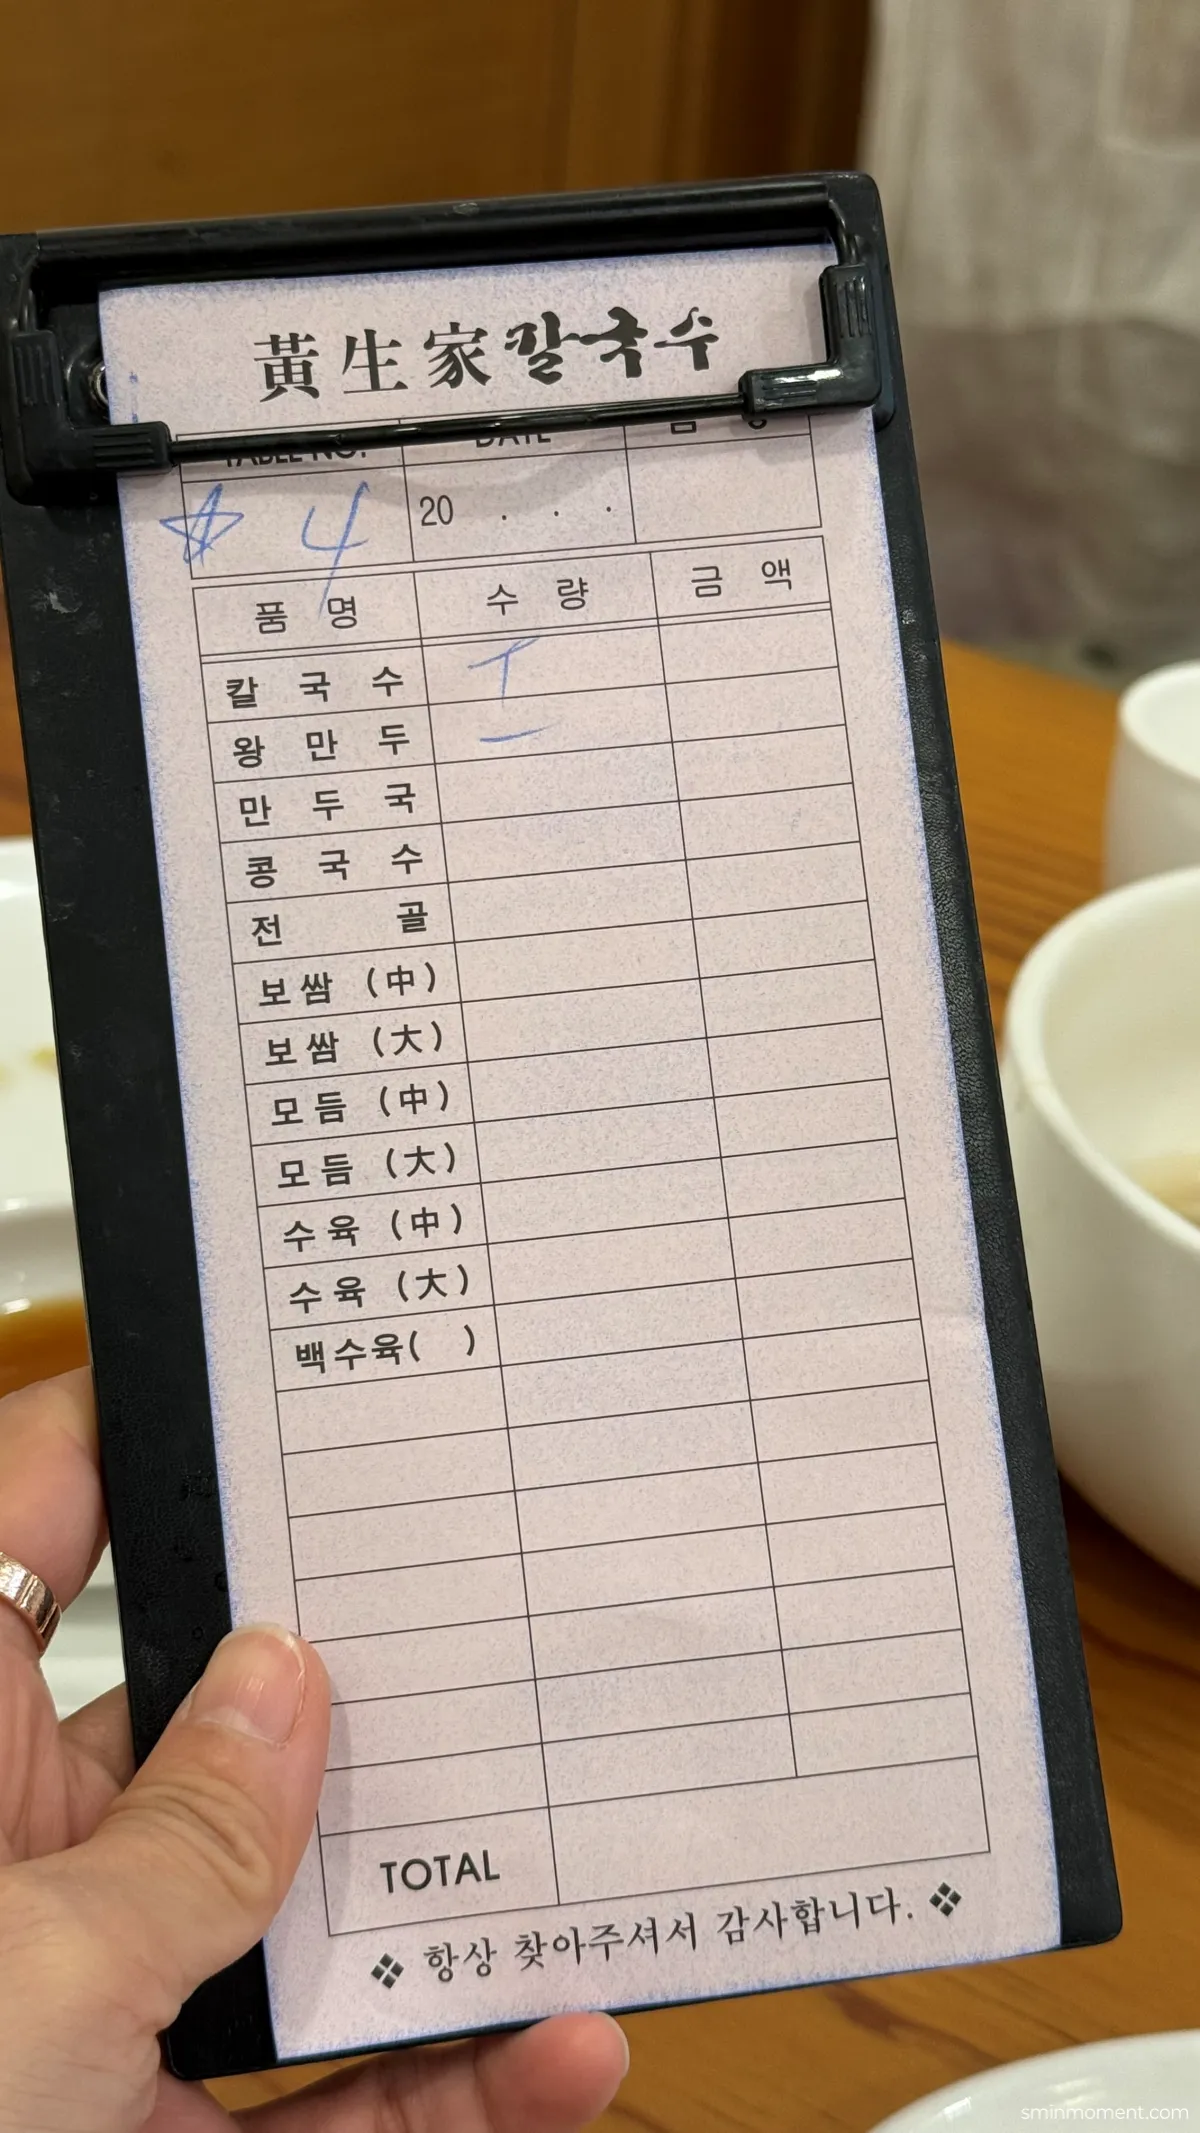 黃生家칼국수
TABLE NO. DATE
☆ 4 20 . . .
품 명 수 량 금 액
칼 국 수 T
왕 만 두 一
만 두 국
콩 국 수
전 골
보쌈 (中)
보쌈 (大)
모듬 (中)
모듬 (大)
수육 (中)
수육 (大)
백수육( )
TOTAL
❖ 항상 찾아주셔서 감사합니다. ❖
sminmoment.com